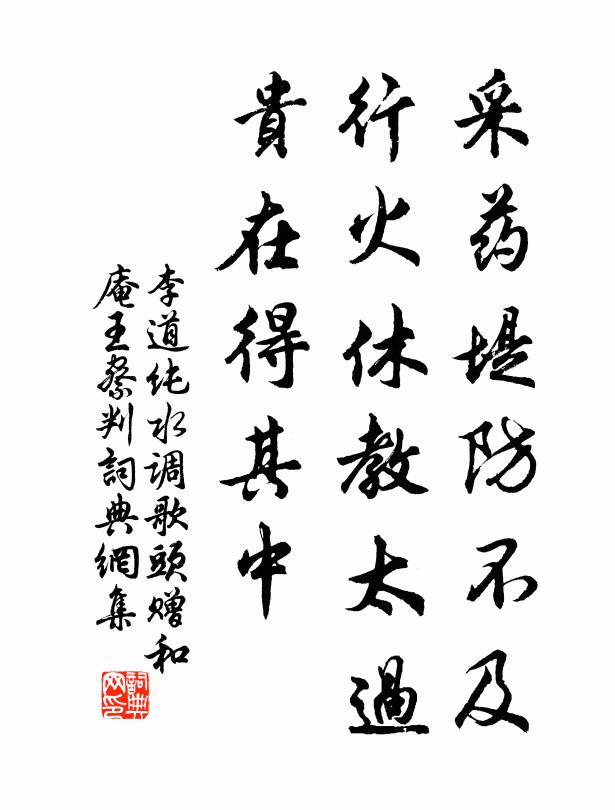 采药堤防不及
行火休教太過
貴在得其中
李道纯水调歌頭赠和
庵王察判詞典網集
詞典
网印